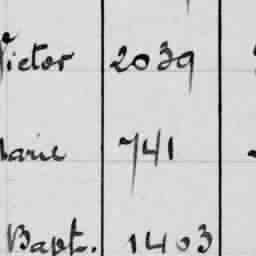 Victor 2039
Marie 741
Bapt. 1403